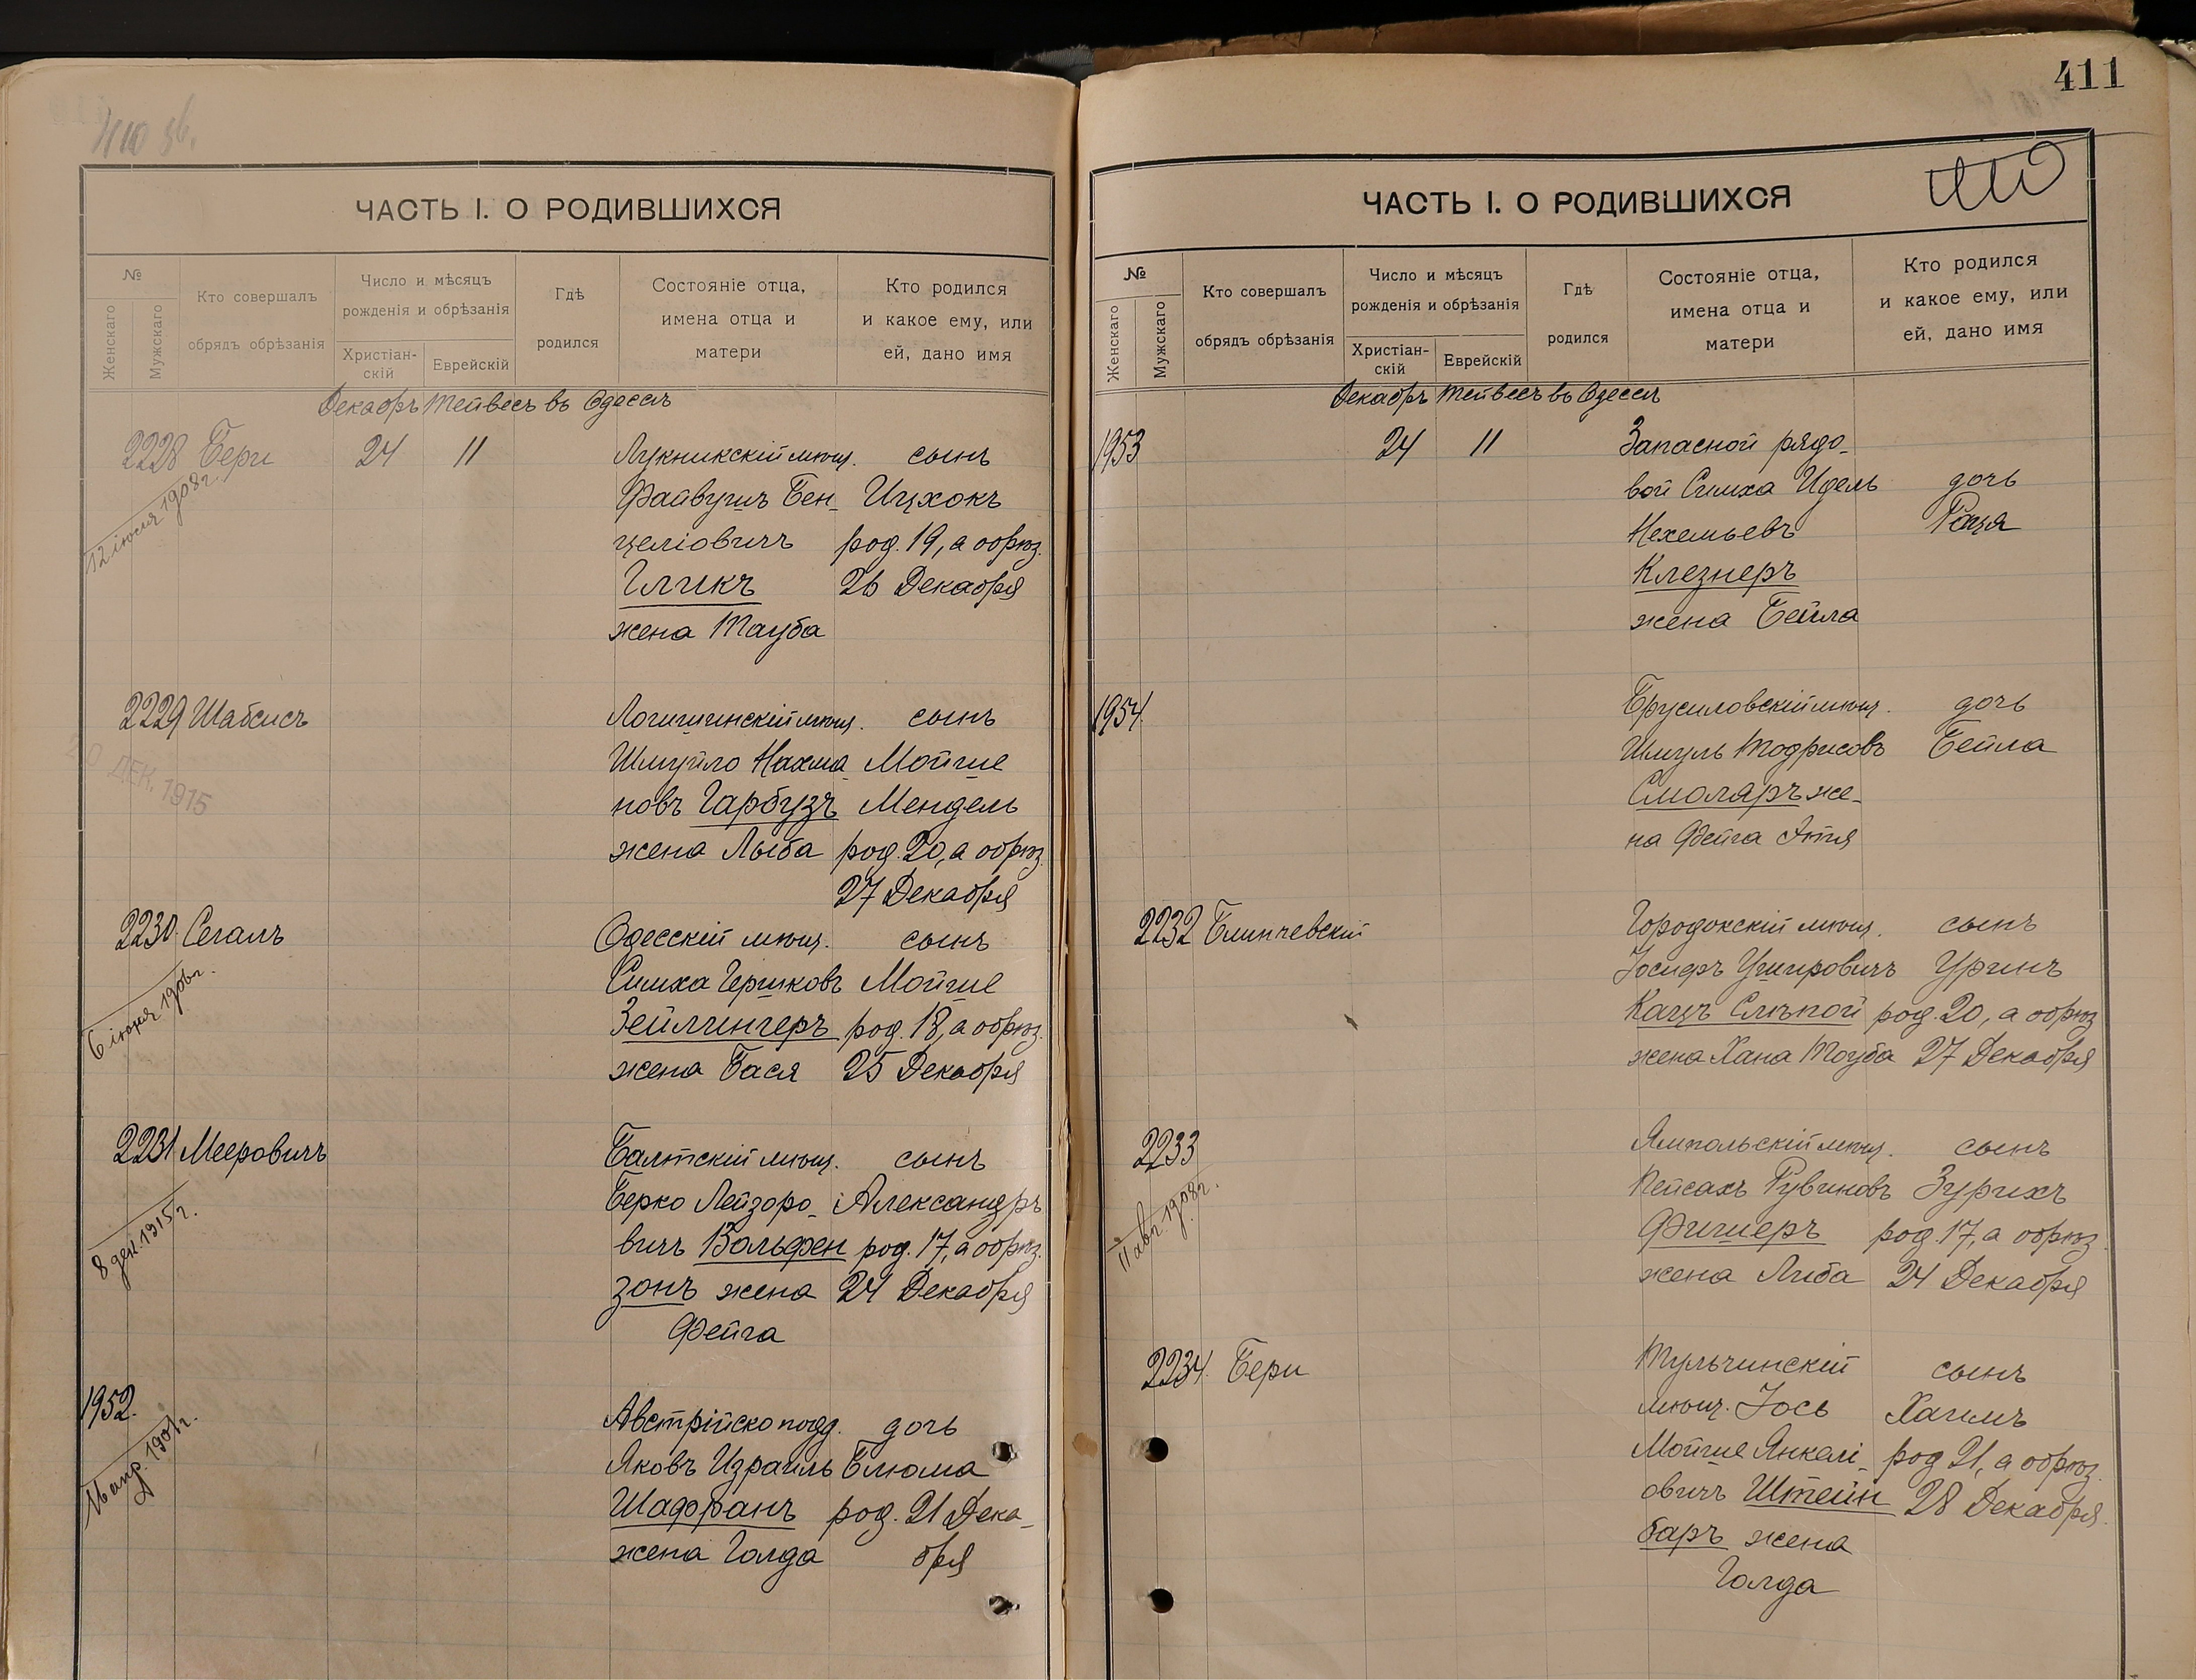 410 об.
ЧАСТЬ I. О РОДИВШИХСЯ
№
Женскаго
Мужскаго
Кто совершалъ
обрядъ обрѣзанія
Число и мѣсяцъ
рожденія и обрѣзанія
Христіан-
скій
Еврейскій
Гдѣ
родился
Состояніе отца,
имена отца и
матери
Кто родился
и какое ему, или
ей, дано имя
Декабрь Тейвесъ въ Одессѣ
2228 Бери 24 11 Лукникскій мѣщ. сынъ
12 іюля 1908 г.
Файвушъ Бен- Ицхокъ
целіовичъ род. 19, а обрѣз.
Гликъ 26 Декабря
жена Тауба
2229 Шабсисъ Логишинскій мѣщ. сынъ
ДЕК. 1915
Шмуйло Нахма- Мойше
новъ Гарбузъ Мендель
жена Лыба род. 20, а обрѣз.
27 Декабря
2230 Сегалъ Одесскій мѣщ. сынъ
6 іюня 1906 г.
Симха Гершковъ Мойше
Зейлингеръ род. 18, а обрѣз.
жена Бася 25 Декабря
2231 Мееровичъ Балтскій мѣщ. сынъ
8 дек. 1915 г.
Берко Лейзоро- Александръ
вичъ Вольфен род. 17, а обрѣз.
зонъ жена 24 Декабря
Фейга
1952. Австрійско подд. дочь
16 апр. 1901 г.
Яковъ Израиль Блюма
Шафранъ род. 21 Дека-
жена Голда бря
411
ЧАСТЬ I. О РОДИВШИХСЯ
№
Женскаго
Мужскаго
Кто совершалъ
обрядъ обрѣзанія
Число и мѣсяцъ
рожденія и обрѣзанія
Христіан-
скій
Еврейскій
Гдѣ
родился
Состояніе отца,
имена отца и
матери
Кто родился
и какое ему, или
ей, дано имя
Декабрь Тейвесъ въ Одессѣ
1953 24 11 Запасной рядо-
вой Симха Идель дочь
Нехемьевъ Рася
Клезнеръ
жена Бейла
1954. Брусиловскій мѣщ. дочь
Шмуль Тодрисовъ Бейла
Смоляръ же-
на Фейга Этя
2232 Блинчевскій Городокскій мѣщ. сынъ
Іосифъ Ушировичъ Уринъ
Кацъ Слѣпой род. 20, а обрѣз
жена Хана Тауба 27 Декабря
2233 Ямпольскій мѣщ. сынъ
11 авг. 1908 г.
Пейсахъ Рувиновъ Зурихъ
Фишеръ род. 17, а обрѣз.
жена Либа 24 Декабря
2234. Бери Тульчинскій сынъ
мѣщ. Іось Хаимъ
Мойше Янкелі- род 21, а обрѣз.
овичъ Штейн 28 Декабря.
баръ жена
Голда